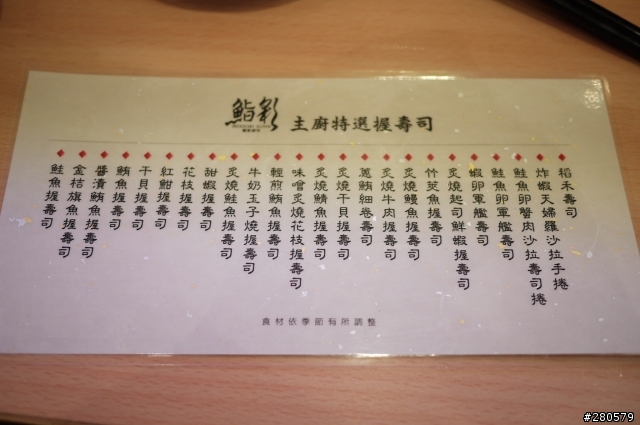 鮨彩
主廚特選握壽司
稻禾壽司
炸蝦天婦羅沙拉手捲
鮭魚卵蟹肉沙拉壽司捲
鮭魚卵軍艦壽司
蝦卵軍艦壽司
炙燒起司鮮蝦握壽司
竹筴魚握壽司
炙燒鰻魚握壽司
炙燒牛肉握壽司
蔥鮪細卷壽司
炙燒干貝握壽司
炙燒鯖魚握壽司
味噌炙燒花枝握壽司
輕煎鮪魚握壽司
牛奶玉子燒握壽司
炙燒鮭魚握壽司
甜蝦握壽司
花枝握壽司
紅魽握壽司
干貝握壽司
鮪魚握壽司
醬漬鮪魚握壽司
金桔旗魚握壽司
鮭魚握壽司
食材依季節有所調整
#280579